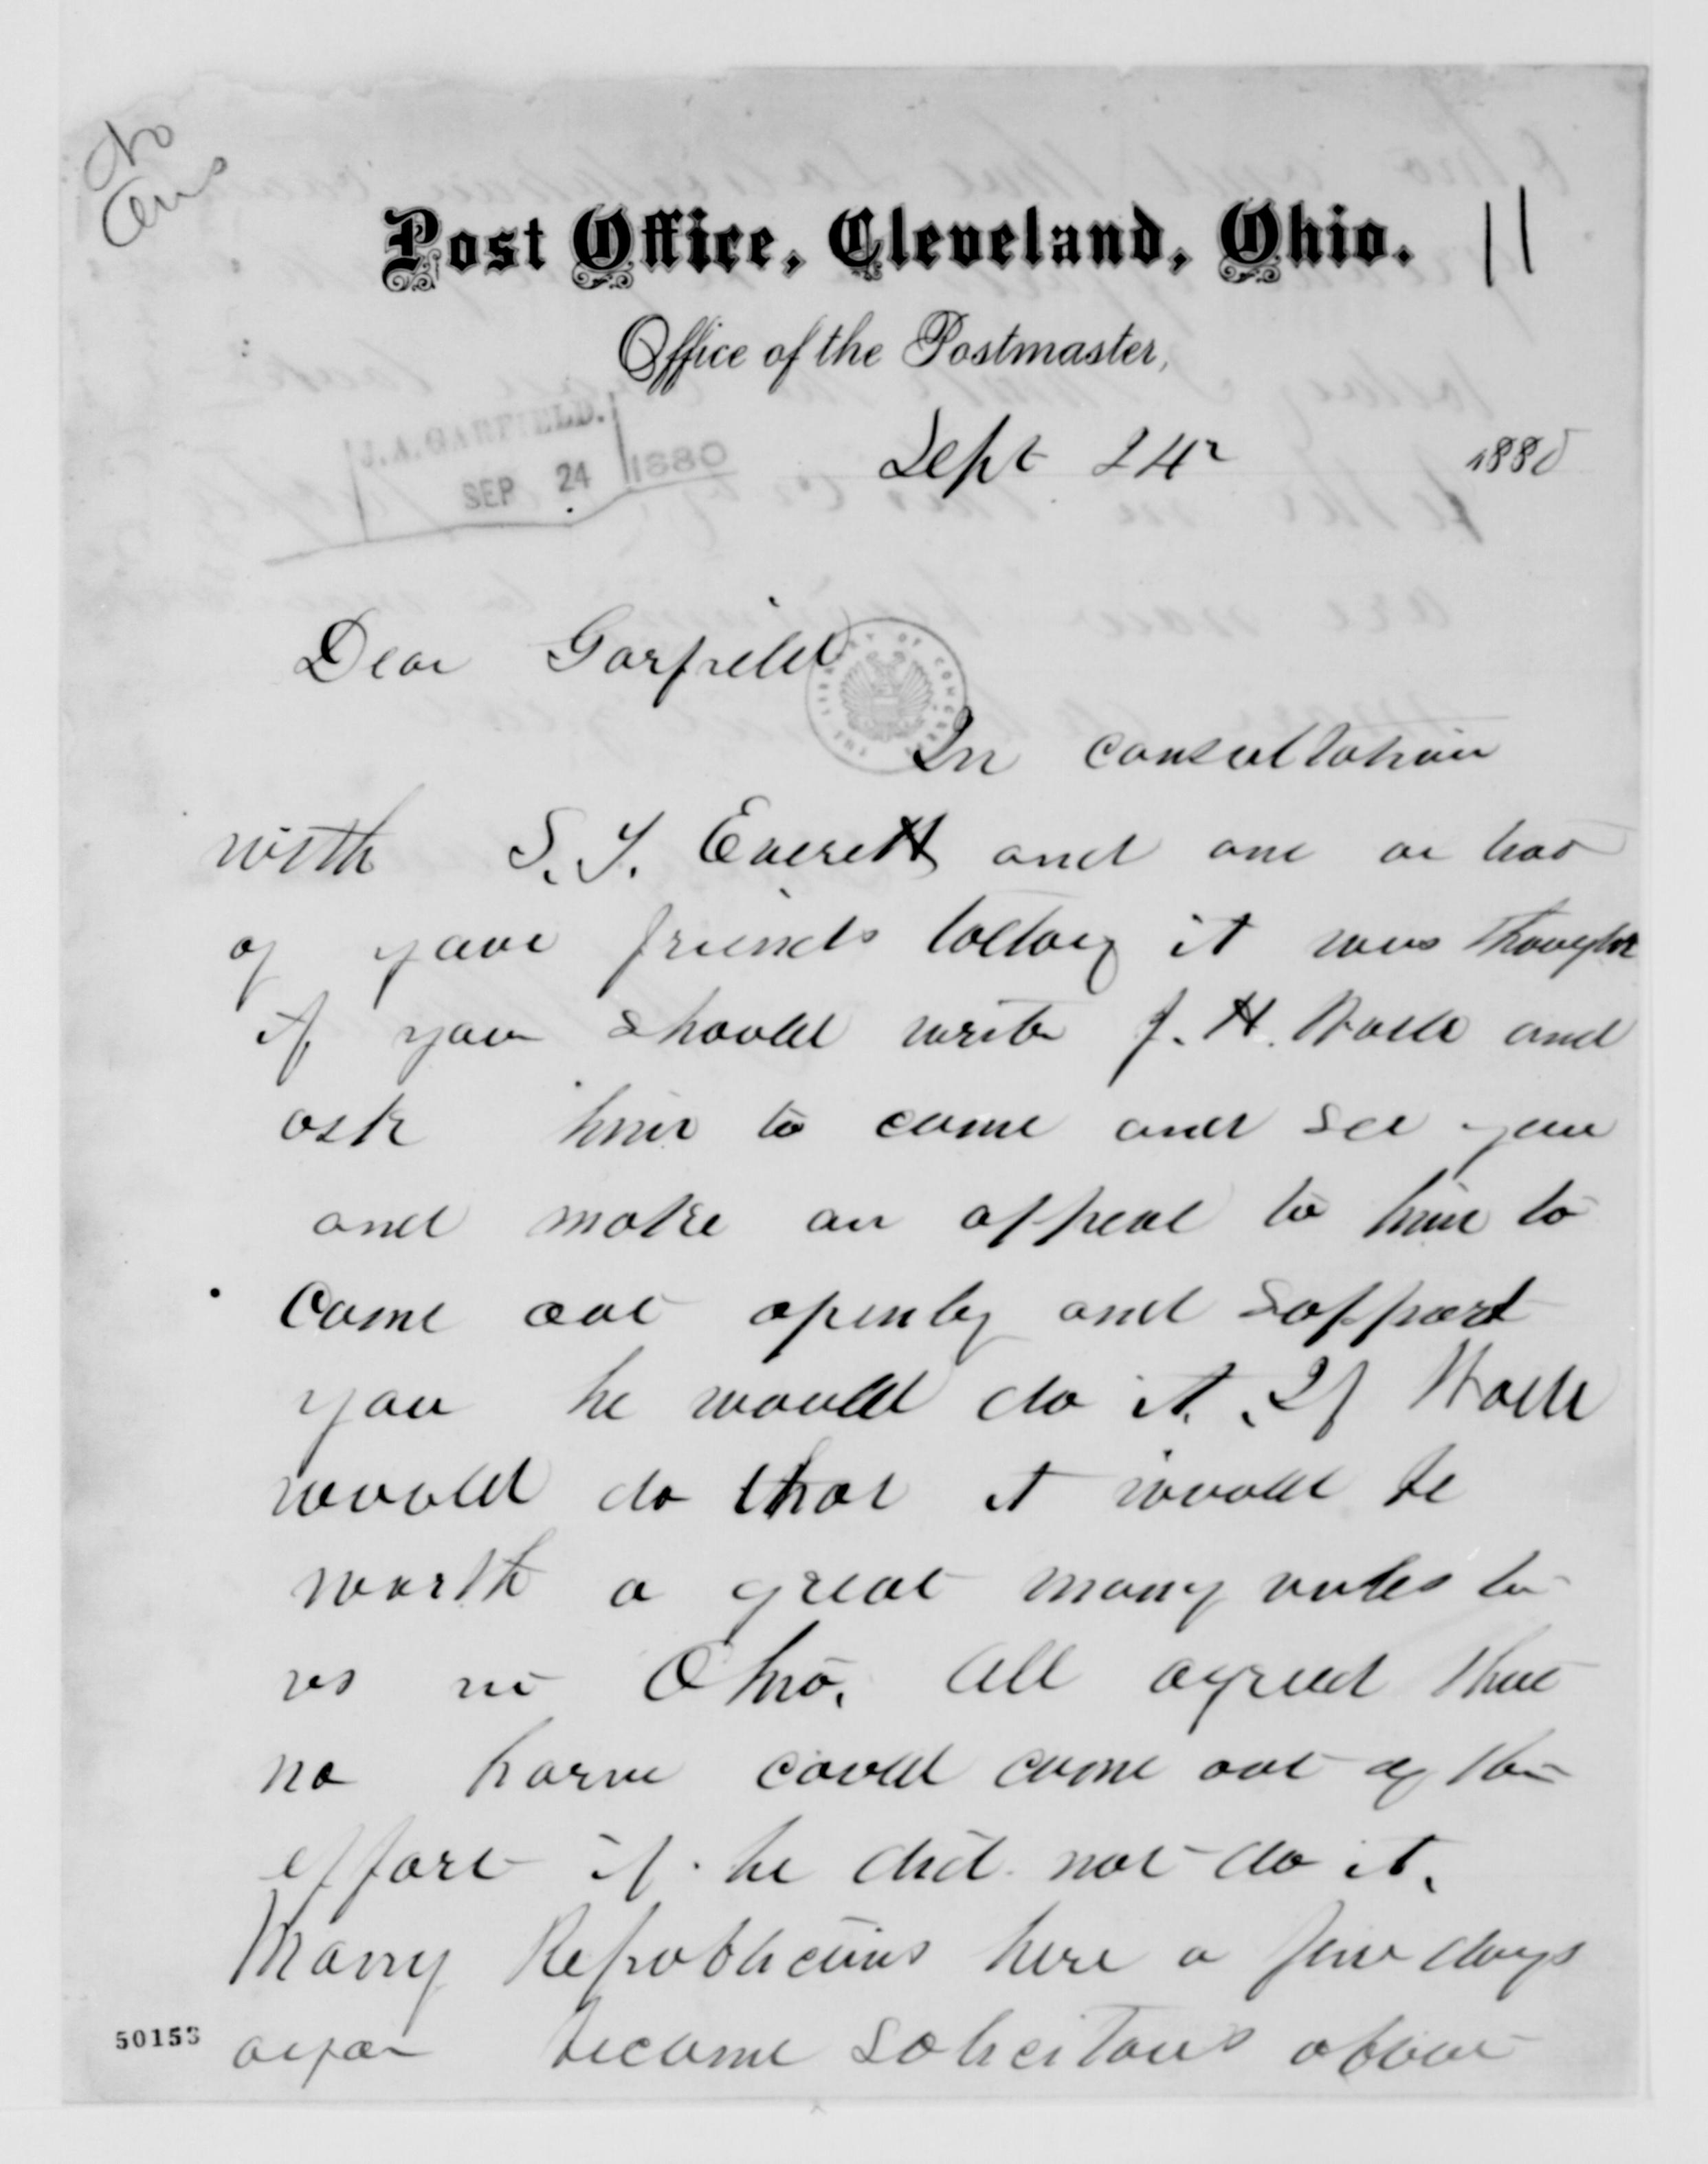 No
Ans
Post Office, Cleveland, Ohio. 11
Office of the Postmaster,
J.A. GARFIELD.
SEP 24 1880
Sept 24 1880
Dear Garfield
THE LIBRARY OF CONGRESS
In consultation
with S. T. Everett and one or two
of your friends today it was thought
if you should write J. H. Wade and
ask him to come and see you
and make an appeal to him to
Come out openly and support
you he would do it. If Wade
would do that it would be
worth a great many votes to
us in Ohio. All agreed that
no harm could come out of the
effort if he did not do it.
Many Republicans here a few days
ago became solicitous about
50153